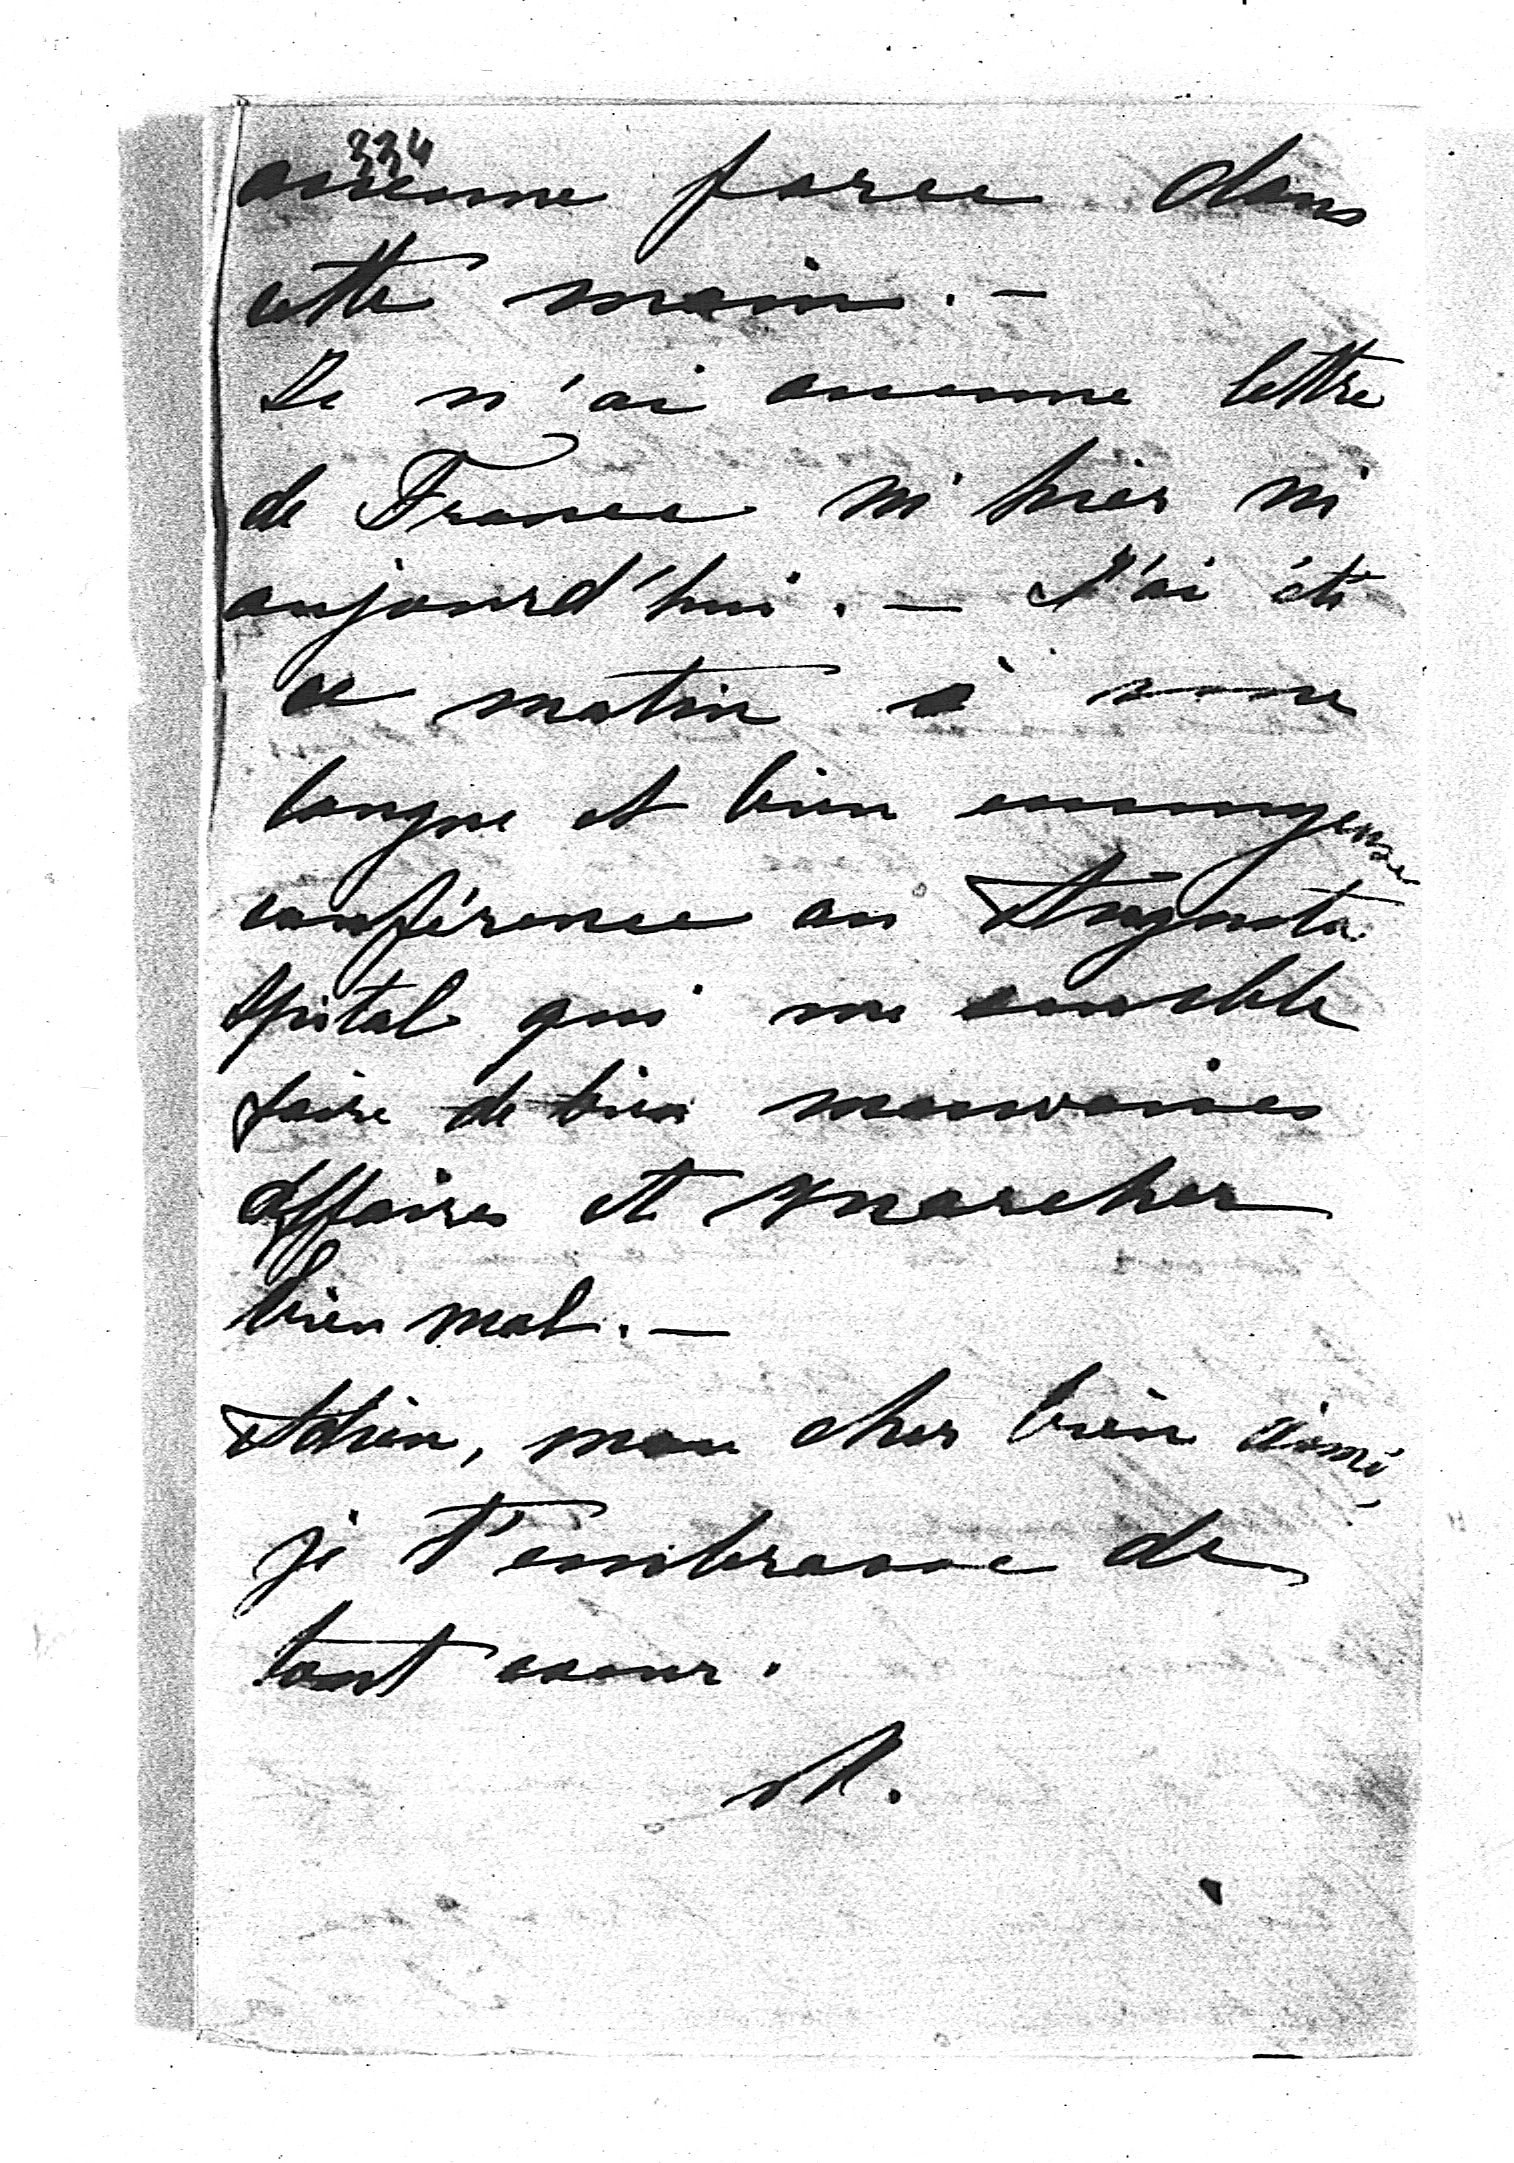 334
aucune force dans
cette main. —
Je n'ai aucune lettre
de France ni hier ni
aujourd'hui. — J'ai été
ce matin à une
longue et bien ennuyeuse
conférence au Augusta
spital qui me semble
faire de bien mauvaises
affaires et marcher
bien mal. —
Adieu, mon cher bien aimé,
je t'embrasse de
tout coeur.
M.